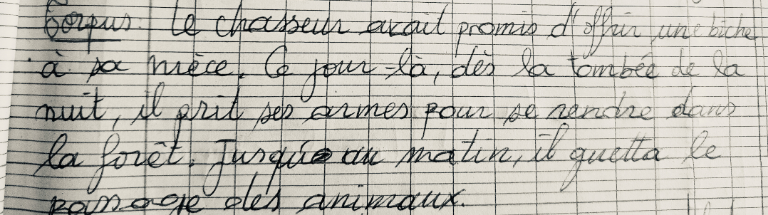 Corpus: Le chasseur avait promis d'offrir une biche
à sa nièce. Ce jour-là, dès la tombée de la
nuit, il prit ses armes pour se rendre dans
la forêt. Jusque au matin, il guetta le
passage des animaux.